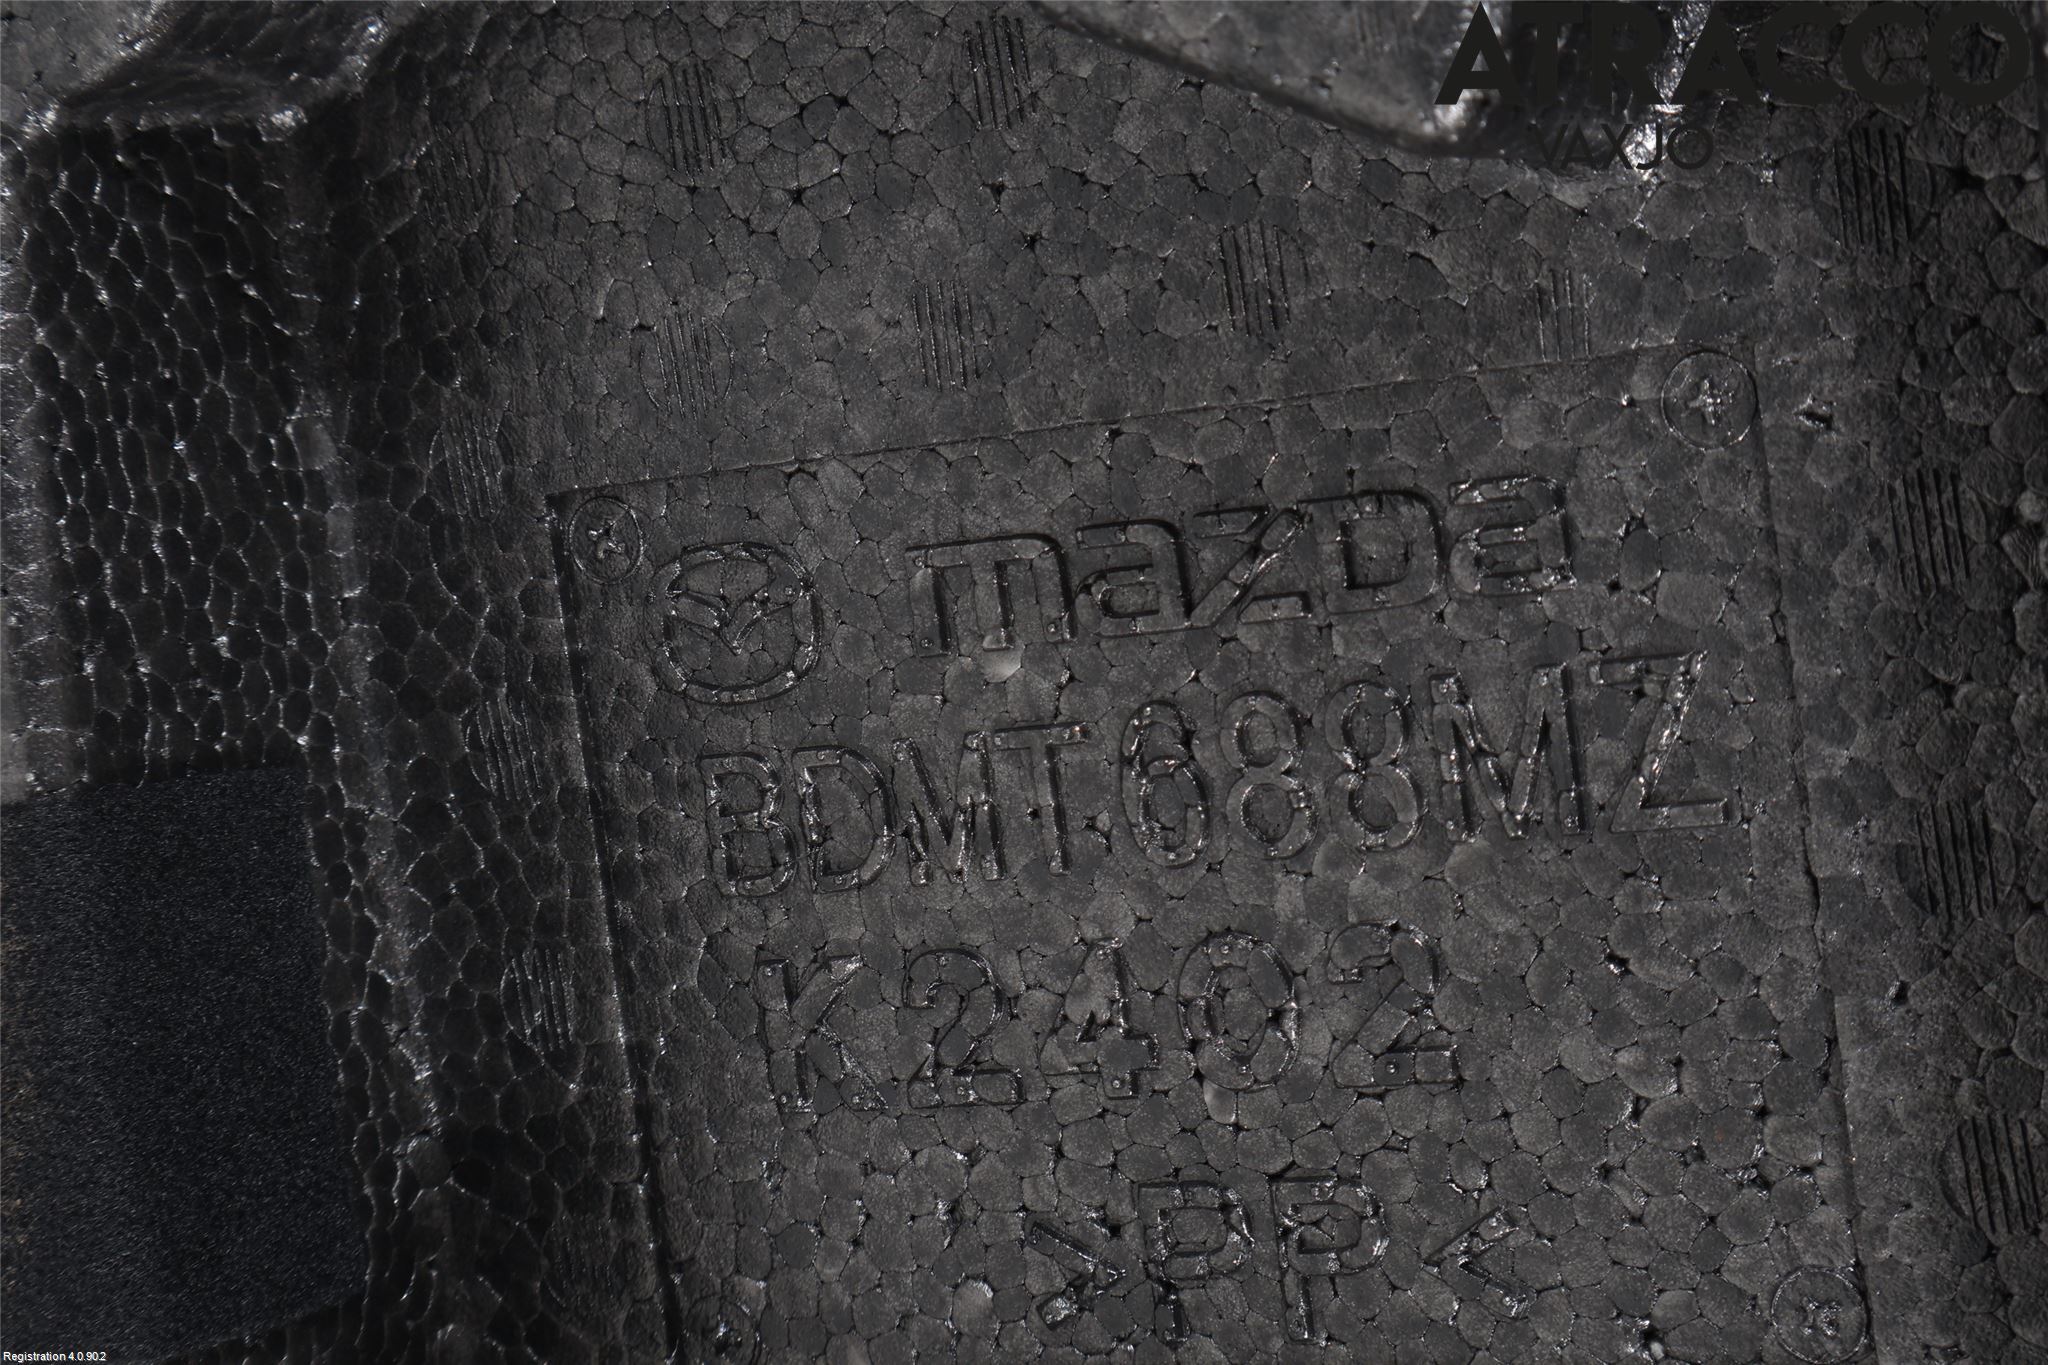 ATRACCO
VAXJO
mazda
BDMT688MZ
K2402
>PP<
Registration 4.0.90.2